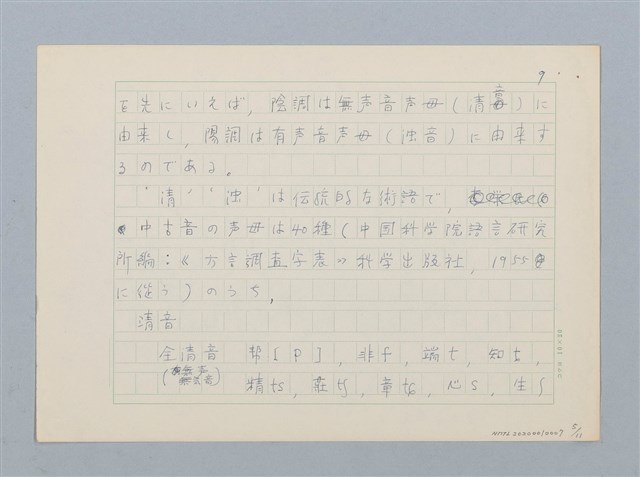 9
を先にいえば，陰調は無声音声母（清音）に
由来し，陽調は有声音声母（浊音）に由来す
るのである。
‘清’‘浊’は伝統的な術語で，
中古音の声母は40種（中国科学院語言研究
所編：《方言調査字表》科学出版社，1955
に従う）のうち，
清音
全清音 帮[p]，非f，端t，知ȶ，
（無声無気音） 精ts，莊tʃ，章tɕ，心s，生ʃ
NMTL20000010007 5/11